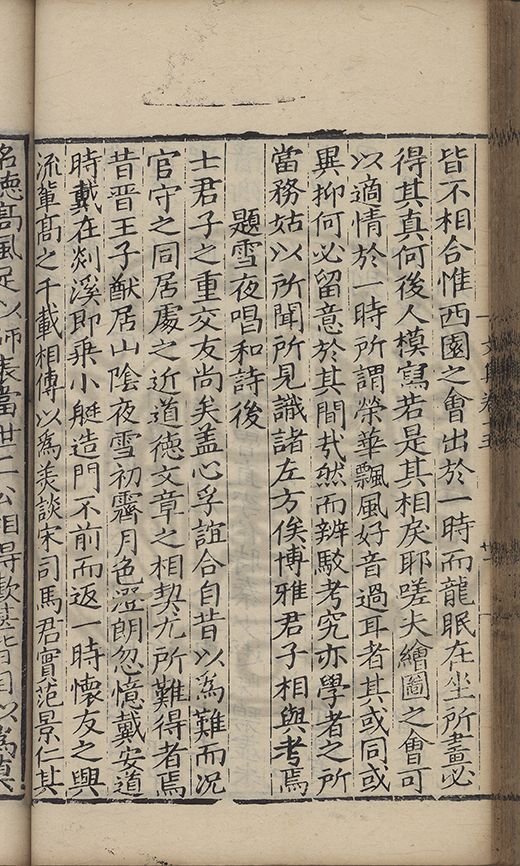 文集卷五
皆不相合惟西園之會出於一時而龍眠在坐所畫必
得其真何後人模寫若是其相戾耶嗟夫繪圖之會可
以適情於一時所謂榮華飄風好音過耳者其或同或
異抑何必留意於其間㢤然而辨駁考究亦學者之所
當務姑以所聞所見識諸左方俟博雅君子相與考焉
題雪夜唱和詩後
士君子之重交友尚矣盖心孚誼合自昔以為難而况
官守之同居處之近道徳文章之相契尤所難得者焉
昔晋王子猷居山陰夜雪初霽月色澄朗忽憶戴安道
時戴在剡溪即乗小艇造門不前而返一時懐友之興
流軰髙之千載相傳以為羙談宋司馬君實范景仁其
名徳髙風足以師表當世二公相得歡